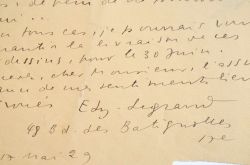 tous cas, je pourrais vous
la livraison de ces
dessins, pour le 30 Juin.
cher Monsieur, l'assu
ance de mes sentiments
Edy. Legrand
48 Bd. des Batignolles
17e
17 Mai 29